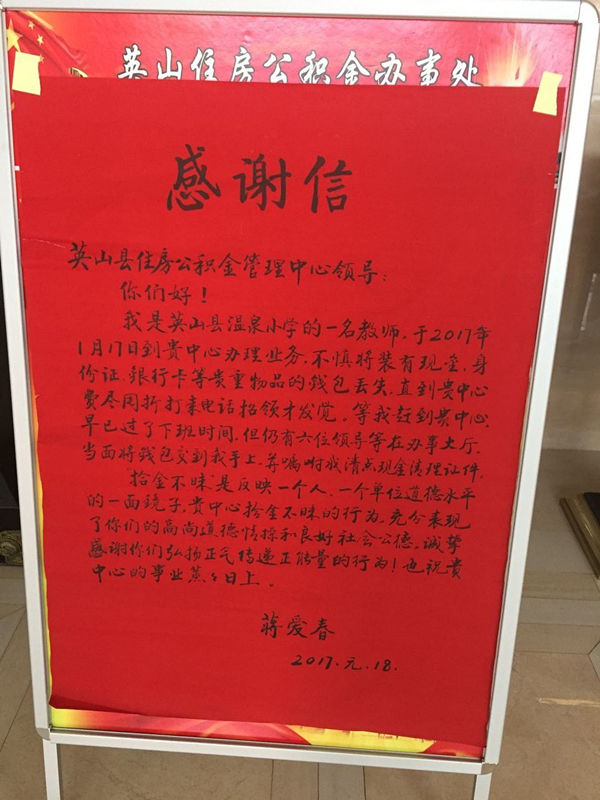 英山住房公积金办事处
感谢信
英山县住房公积金管理中心领导：
你们好！
我是英山县温泉小学的一名教师，于2017年
1月17日到贵中心办理业务，不慎将装有现金、身
份证、银行卡等贵重物品的钱包丢失，直到贵中心
费尽周折打来电话招领才发觉。等我赶到贵中心，
早已过了下班时间，但仍有六位领导等在办事大厅，
当面将钱包交到我手上，并嘱咐我清点现金清理证件。
“拾金不昧”是反映一个人、一个单位道德水平
的一面镜子，贵中心拾金不昧的行为，充分表现
了你们的高尚道德情操和良好社会公德。诚挚
感谢你们弘扬正气传递正能量的行为！也祝贵
中心的事业蒸々日上。
蒋爱春
2017.元.18.